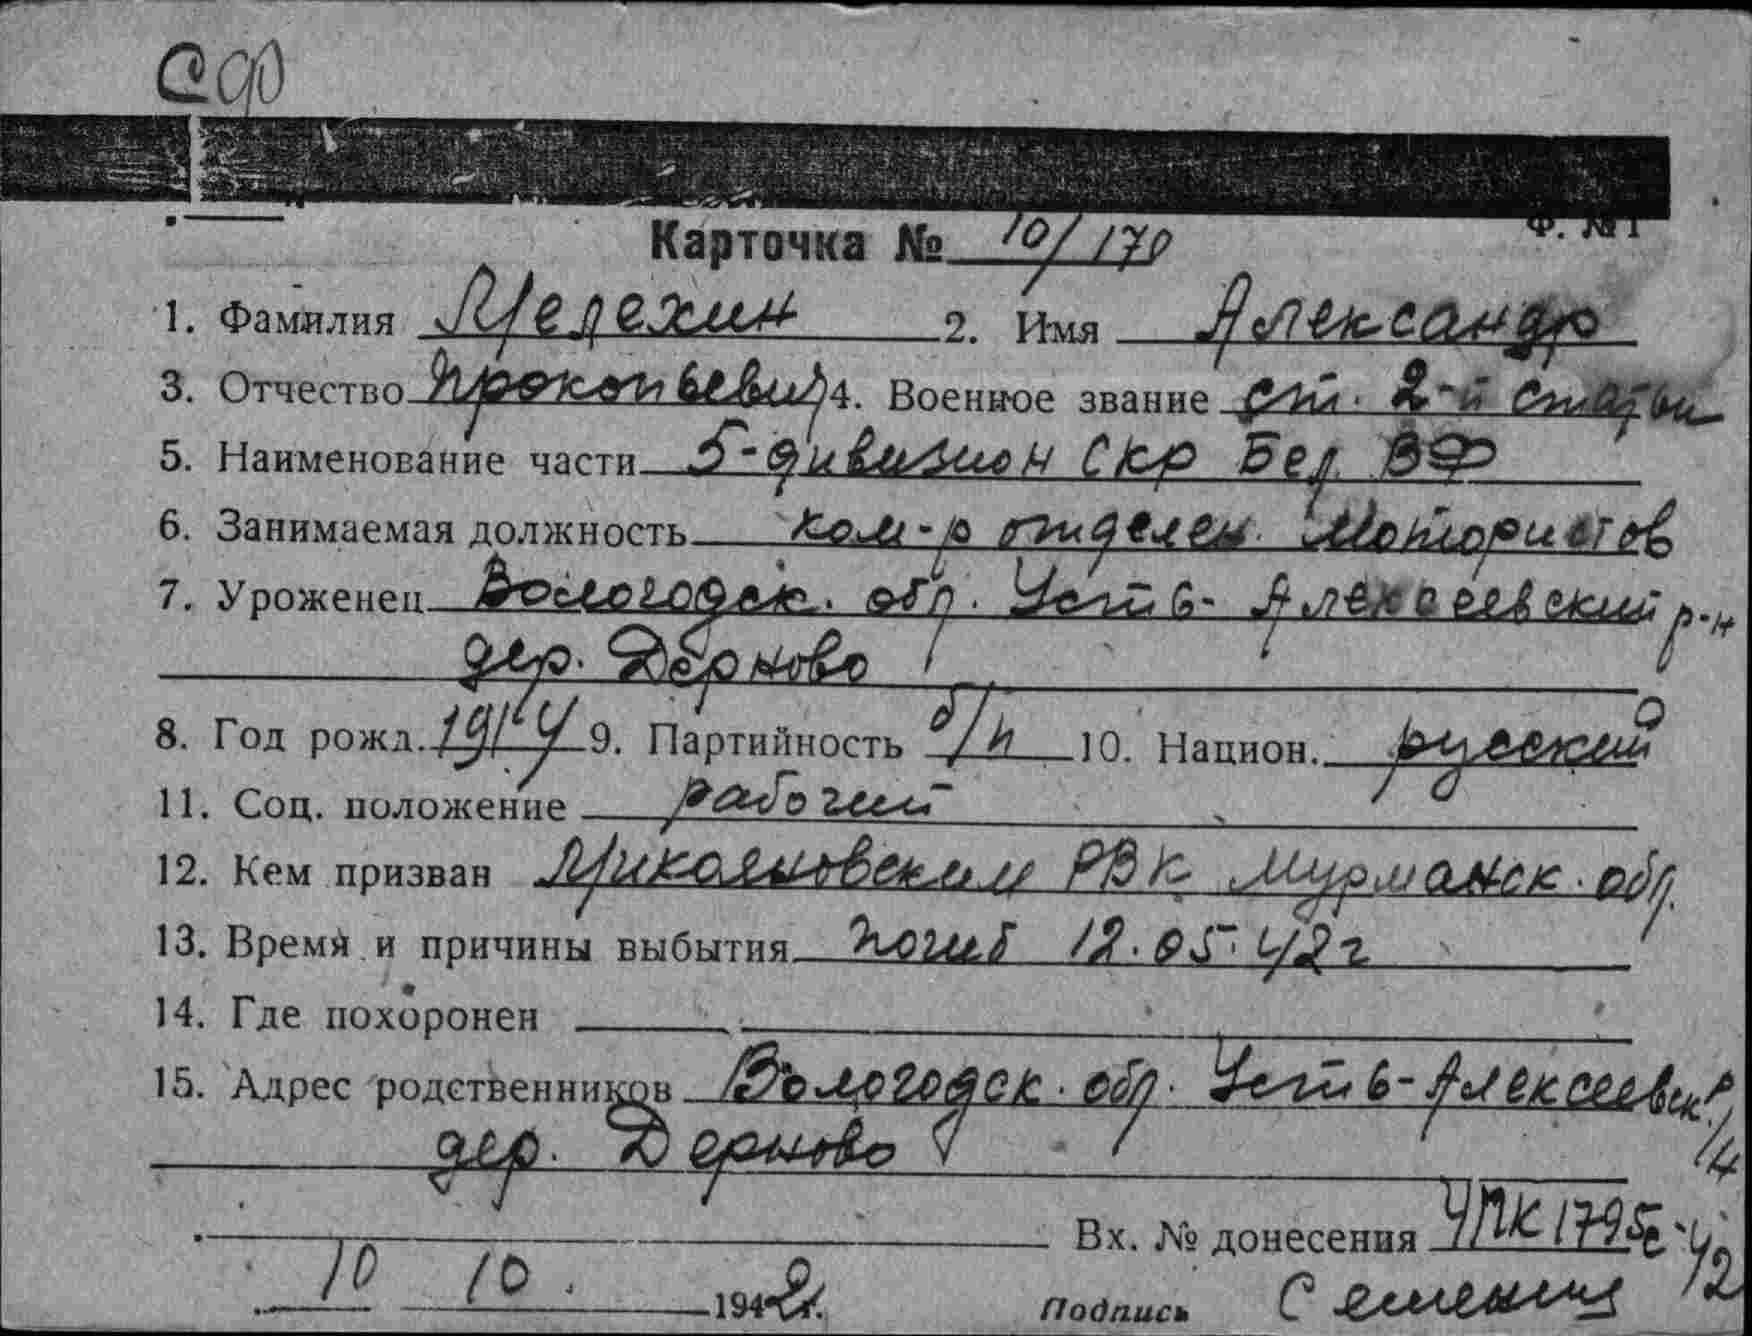 Ф. № 1
Карточка № 10/170
1. Фамилия Мелехин 2. Имя Александр
3. Отчество Прокопьевич 4. Военное звание ст. 2-й статьи
5. Наименование части 5-дивизион Скр Бел. ВФ
6. Занимаемая должность ком-р отделен. мотористов
7. Уроженец Вологодск. обл. Усть-Алексеевский р-н
дер. Дерново
8. Год рожд. 1914 9. Партийность б/п 10. Национ. русский
11. Соц. положение рабочий
12. Кем призван Микояновским РВК Мурманск. обл.
13. Время и причины выбытия погиб 12.05.42г
14. Где похоронен
15. Адрес родственников Вологодск. обл. Усть-Алексеевск р/н
дер. Дерново
Вх. № донесения 1795с-42
10 10. 1942г. Подпись